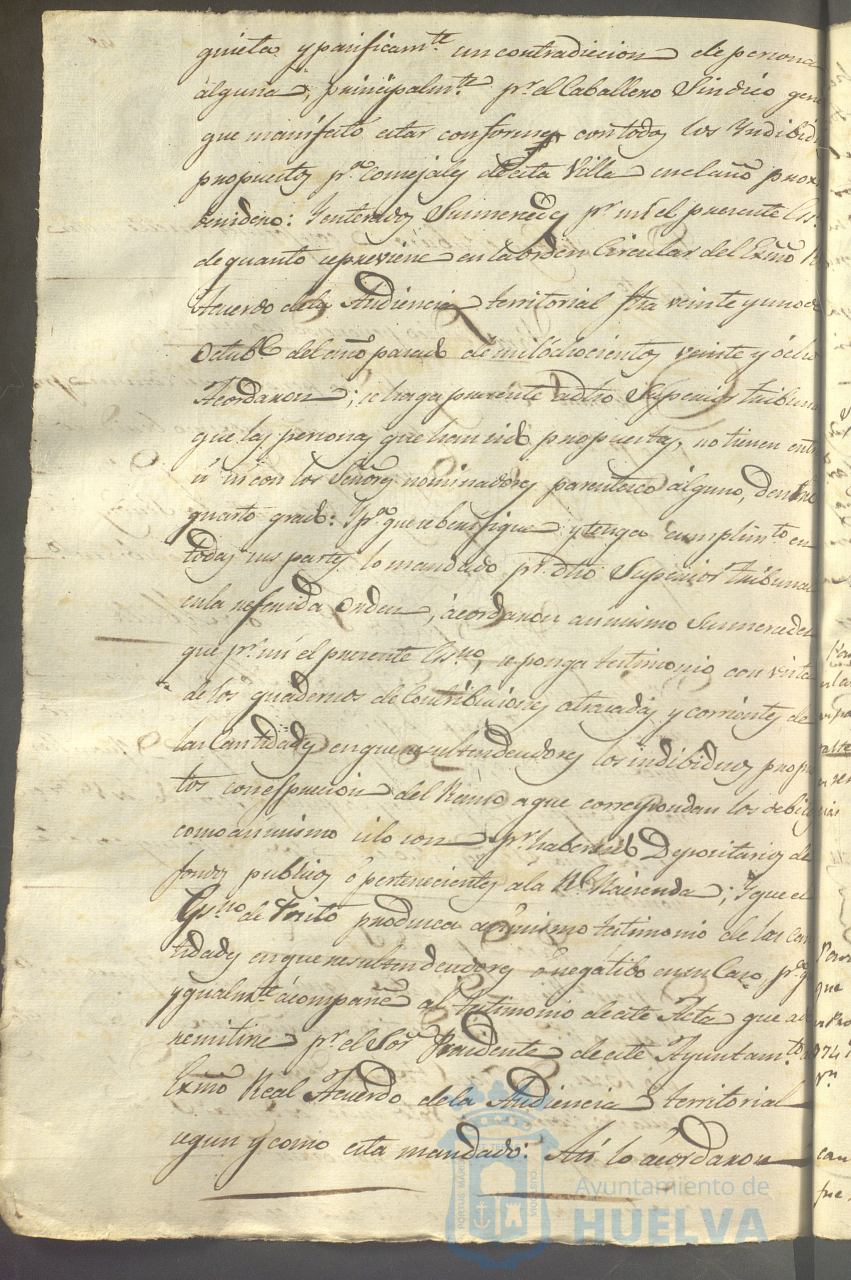 quieta y pasificamte. sin contradicion de persona
alguna; principalmte. pr. el Caballero Sindico gen
que manifestó estar conforme con todos los Yndibid
propuestos pa. Consejales de esta Villa en el año prox
benidero: Yenterados Sus mercedes pr. mi el presente Es
de quanto se previene en la orden Circular del Exmo R
Acuerdo de la Audiencia territorial fha veinte y uno de
Octube. del año pasado de mil ochocientos veinte y ocho
Acordaron; se haga presente a dho Superior tribuna
que las personas que han sido propuestas, no tienen entr
si ni con los Señores nominadores parentesco alguno, dentro
quarto grado: Y pa. que se berifique y tenga cumplimto en
todas sus partes lo mandado pr. dho Superior tribunal
en la referida Orden, acordaron asimismo Sus mercedes
que pr. mi el presente Essno, se ponga testimonio con vista
de los quadernos de Contribuciones atrasadas y corrientes de
las Cantidades en que resulten deudores los indibiduos propu
tos con espresion del Ramo a que correspondan los debitos
como asimismo si lo son pr. haber sido Depositarios de
fondos publicos ó pertenecientes á la Rl. Hacienda; Y que el
Essno de Posito produzca asimismo testimonio de las can
tidades en que resulten deudores ó negatibo en su Caso pa. q
ygualmte. acompañe al testimonio de este Acta que a de
remitirse pr. el Sor. Presidente de este Ayuntamto.
Exmo Real Acuerdo de la Audiencia territorial
segun y como esta mandado: Asi lo acordaron
Ayuntamiento de
HUELVA